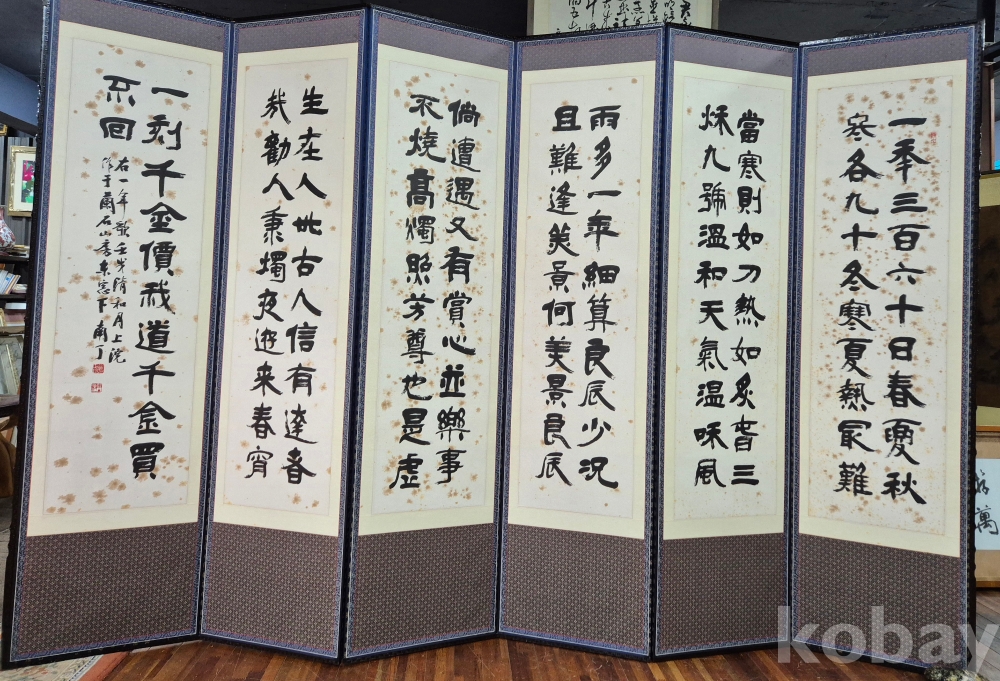 一年三百六十日春夏秋
寒各九十冬寒夏熱最難
當寒則如刀熱如炙春三
秋九號溫和天氣溫和風
雨多一年細算良辰少況
且難逢美景何美景良辰
倘遭遇又有賞心並樂事
不燒高燭照芳尊也是虛
生在人世古人信有達者
哉勸人秉燭夜遊來春宵
一刻千金價我道千金買
不回
右一年歌 清和月上浣
蘭石山房東窓下 南丁
萬
kobay